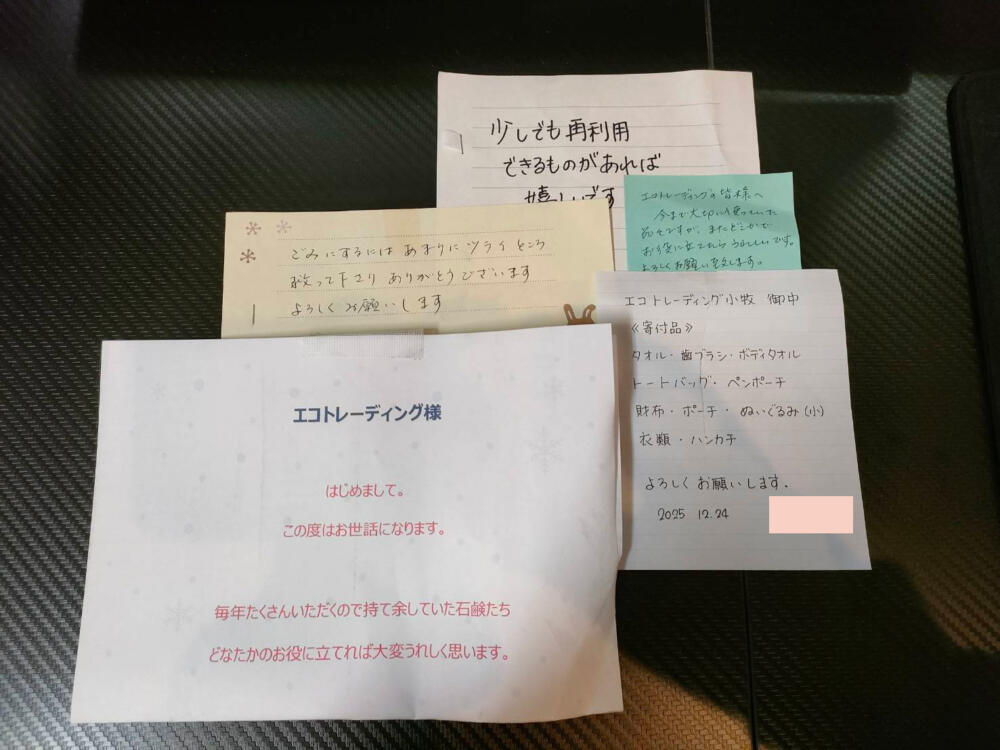 少しでも再利用
できるものがあれば
嬉しいです
エコトレーディングの皆様へ
今まで大切に使っていた
品々ですが、またどこかで
お役に立てたら うれしいです。
よろしくお願い致します。
ごみにするには あまりにツライところ
救って下さり ありがとうございます
よろしく お願いします
エコトレーディング小牧 御中
《寄付品》
タオル・歯ブラシ・ボディタオル
トートバッグ・ペンポーチ
財布・ポーチ・ぬいぐるみ(小)
衣類・ハンカチ
よろしくお願いします。
2025 12.24
エコトレーディング様
はじめまして。
この度はお世話になります。
毎年たくさんいただくので持て余していた石鹸たち
どなたかのお役に立てれば大変うれしく思います。